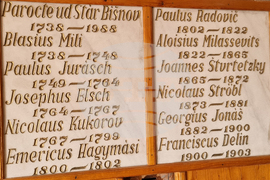 Parocte ud Star Bišnov
1738 – 1988
Blasius Mili
1738 – 1748
Paulus Jurasch
1749 – 1764
Josephus Elsch
1764 – 1767
Nicolaus Kukorov
1767 – 1799
Emericus Hagymási
1800 – 1802
Paulus Radovič
1802 – 1822
Aloisius Milassevits
1822 – 1865
Joannes Sturtetzky
1865 – 1872
Nicolaus Strobl
1873 – 1881
Georgius Jonáš
1882 – 1900
Franciscus Delin
1900 – 1903